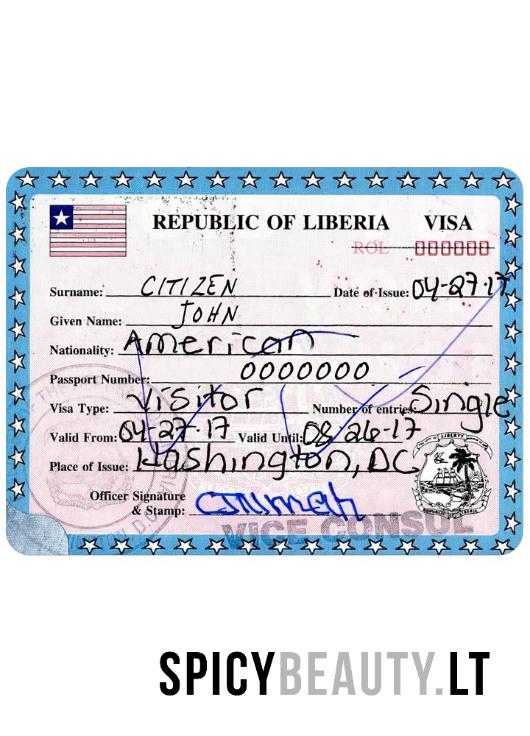 REPUBLIC OF LIBERIA VISA
ROL 000000
Surname: CITIZEN Date of Issue: 04-27-17
Given Name: JOHN
Nationality: American
Passport Number: 0000000
Visa Type: Visitor Number of entries: Single
Valid From: 04-27-17 Valid Until: 08-26-17
Place of Issue: Washington, DC
LIBERTY
Officer Signature
& Stamp:
VICE CONSUL
SPICYBEAUTY.LT